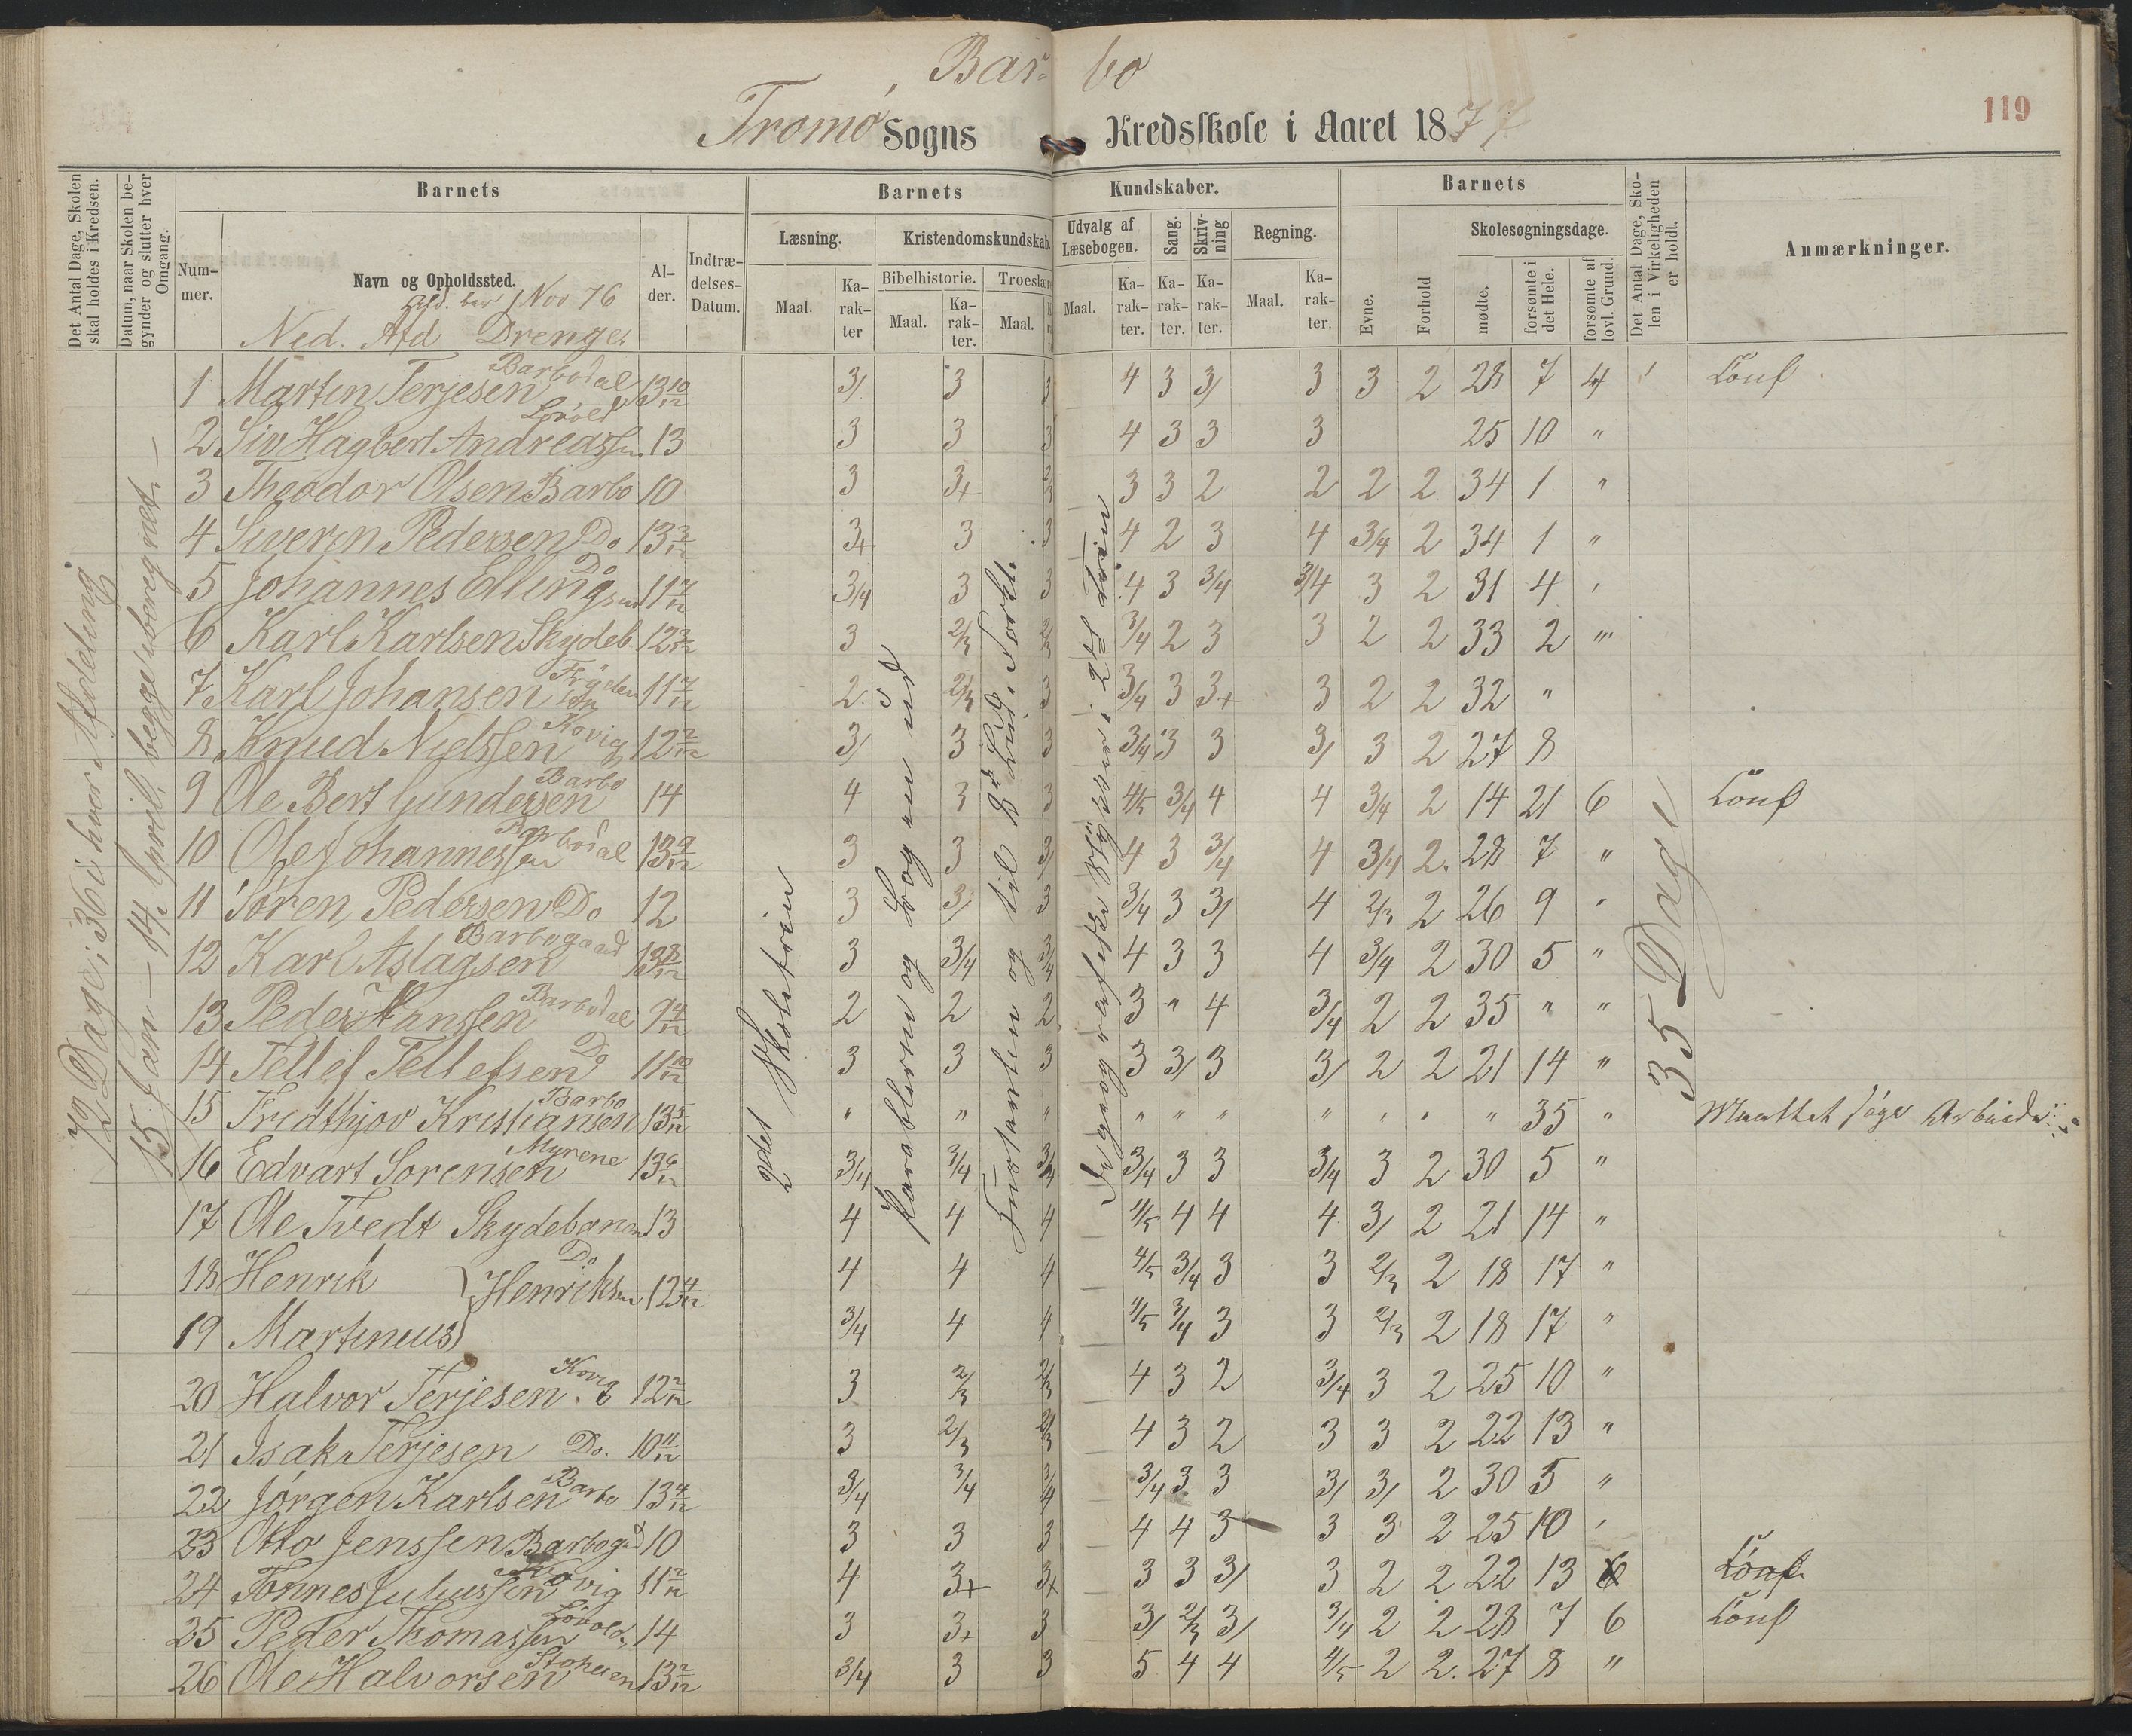 Barbo
119
Tromø Sogns Kredsskole i Aaret 1877
Det Antal Dage, Skolen skal holdes i Kredsen.
Datum, naar Skolen begynder og slutter hver Omgang.
Barnets
Nummer.
Navn og Opholdssted.
Alder.
Indtrædelses-Datum.
Barnets Kundskaber.
Læsning.
Maal.
Karakter
Kristendomskundskab
Bibelhistorie.
Maal.
Karakter.
Troeslære
Maal.
Udvalg af Læsebogen.
Maal.
Karakter.
Sang.
Karakter.
Skrivning
Karakter.
Regning.
Maal.
Karakter.
Barnets
Evne.
Forhold
Skolesøgningsdage.
mødte.
forsømte i det Hele.
forsømte af lovl. Grund.
Det Antal Dage, Skolen i Virkeligheden er holdt.
Anmærkninger.
Nov 76
Ned. Afd Drenge.
72 Dage; 36 i hver Afdeling
15 Jan – 14 April, begge iberegnet.
2det Skoletrin
Parablerne og Bogen ud
til
35 Dage
1 Martin Terjesen Barbodal 13 10/12 3/ 3 3 4 3 3/ 3 3 2 28 7 4 Conf.
2 Siv Hagbert Andreassen 13 3 3 3 4 3 3 3 25 10 "
3 Theodor Olsen Barbo 10 3 3+ 2/3 3 3 2 2 2 2 34 1 "
4 Severin Pedersen Do 13 3/12 3+ 3 3 4 2 3 4 3/4 2 34 1 "
5 Johannes Ellingsen Do 11 7/12 3/4 3 3 4 3 3/4 3/4 3 2 31 4 "
6 Karl Karlsen Skydeb. 3 2/3 2/3 3/4 2 3 3 2 2 33 2 "
7 Karl Johansen 11 7/12 2 2/3 3 3/4 3 3+ 3 2 2 32 "
8 Knud Nielssen Kovig 12 2/12 3/ 3 3 3/4 3 3 3/ 3 2 27 8
9 Ole Bert Gundersen Barbo 14 4 3 3 4/5 3/4 4 4 3/4 2 14 21 6 Conf
10 Ole Johannessen Barbodal 13 9/12 3 3 3/ 4 3 3/4 4 3/4 2 28 7 "
11 Søren Pedersen Do 12 3 3/ 3 3/4 3 3/ 4 2/3 2 26 9 "
12 Karl Aslagsen Barbogaard 13 8/12 3 3/4 3/4 4 3 3 4 3/4 2 30 5 "
13 Peder Hanssen Barbodal 9 4/12 2 2 2 3 " 4 3/4 2 2 35 " "
14 Tellef Tellefsen Do 11 10/12 3 3 3 3 3/ 3 3/ 2 2 21 14 "
15 Fredthjov Kristiansen Barbo 13 5/12 " " " " " " " " " " 35 " Maattet søge Arbeide
16 Edvart Sorensen Myrene 13 6/12 3/4 3/4 3/4 3/4 3 3 3/4 3 2 30 5 "
17 Ole Tvedt Skydebanen 13 4 4 4 4/5 4 4 4 3/ 2 21 14 "
18 Henrik Henriksen Do 12 4/12 4 4 4 4/5 3/4 3 3 2/3 2 18 17 "
19 Martineus 3/4 4 4 4/5 3/4 3 3 2/3 2 18 17 "
20 Halvor Terjesen Kovig 12 2/12 3 2/3 2/3 4 3 2 3/4 3 2 25 10 "
21 Isak Terjesen Do. 10 11/12 3 2/3 2/3 4 3 2 3 3 2 22 13 "
22 Jørgen Karlsen Barbo 13 4/12 3/4 3/4 3/4 3/4 3 3 3/ 3/ 2 30 5 "
23 Otto Jenssen Barbogd 10 3 3 3 4 4 3 3 3 2 25 10 "
24 Tønnes Juliussen Kovig 11 2/12 4 3+ 3+ 3 3 3/ 3 2 2 22 13 Conf.
25 Peder Thomassen 14 3 3+ 3 3/ 2/3 3/ 3/4 2 2 28 7 6 Conf
26 Ole Halvorsen 13 2/12 3/4 3 3 5 4 4 4/5 2 2 27 8 "